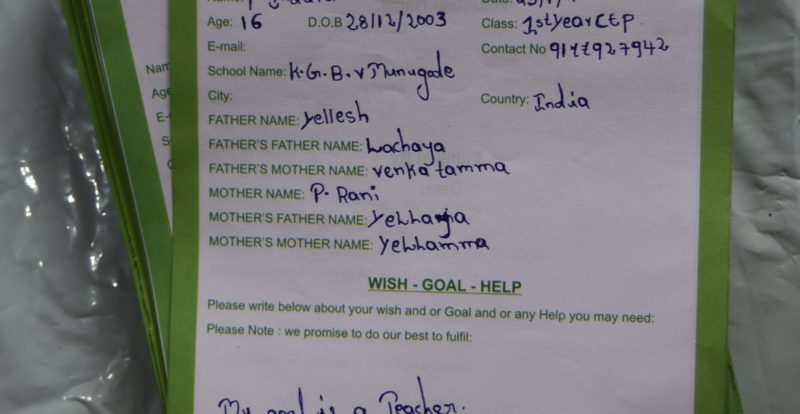 Age: 16 D.O.B 28/12/2003 Class: 1st year CEP
E-mail: Contact No 9177927942
School Name: K.G.B.V Munugode
City: Country: India
FATHER NAME: Yellesh
FATHER'S FATHER NAME: Lachaya
FATHER'S MOTHER NAME: venka tamma
MOTHER NAME: P. Rani
MOTHER'S FATHER NAME:
MOTHER'S MOTHER NAME: Yellamma
WISH - GOAL - HELP
Please write below about your wish and or Goal and or any Help you may need:
Please Note : we promise to do our best to fulfil:
My goal is a Teacher.
Nam
Age
E-